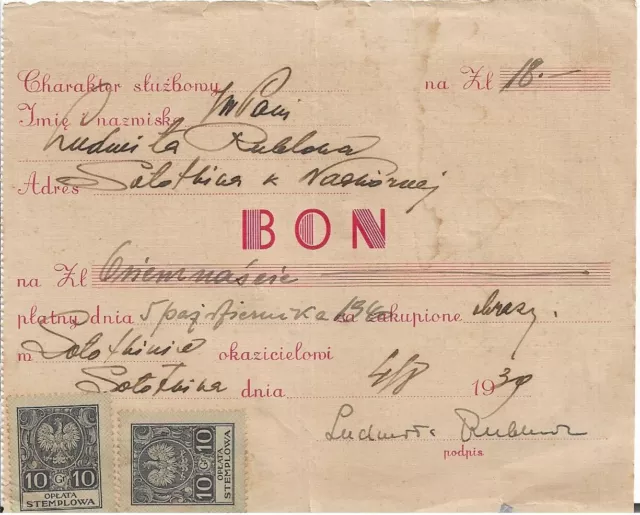 Charakter służbowy na Zł 18.—
Imię i nazwisko Pani
Ludmiła Rublowa
Adres Sołotwina k Nadwórnej
BON
na Zł Osiemnaście
płatny dnia 5 października na zakupione obrazy.
w Sołotwinie okazicielowi
Sołotwina dnia 4/8 1939
Ludmiła
podpis
10 Gr 10
OPŁATA
STEMPLOWA
10 Gr 10
OPŁATA
STEMPLOWA